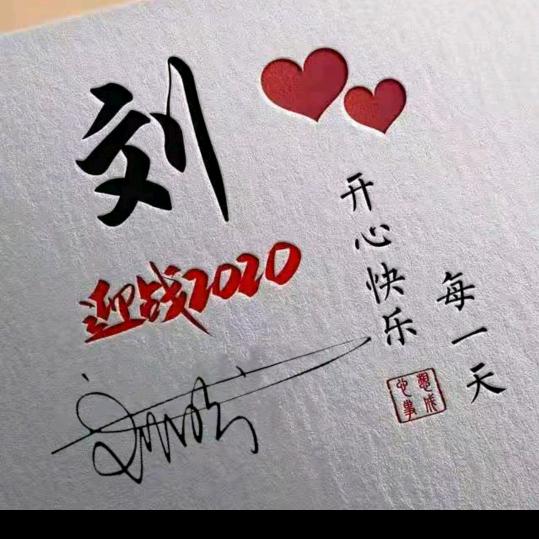 刘
迎战2020
开心快乐
每一天
心想事成